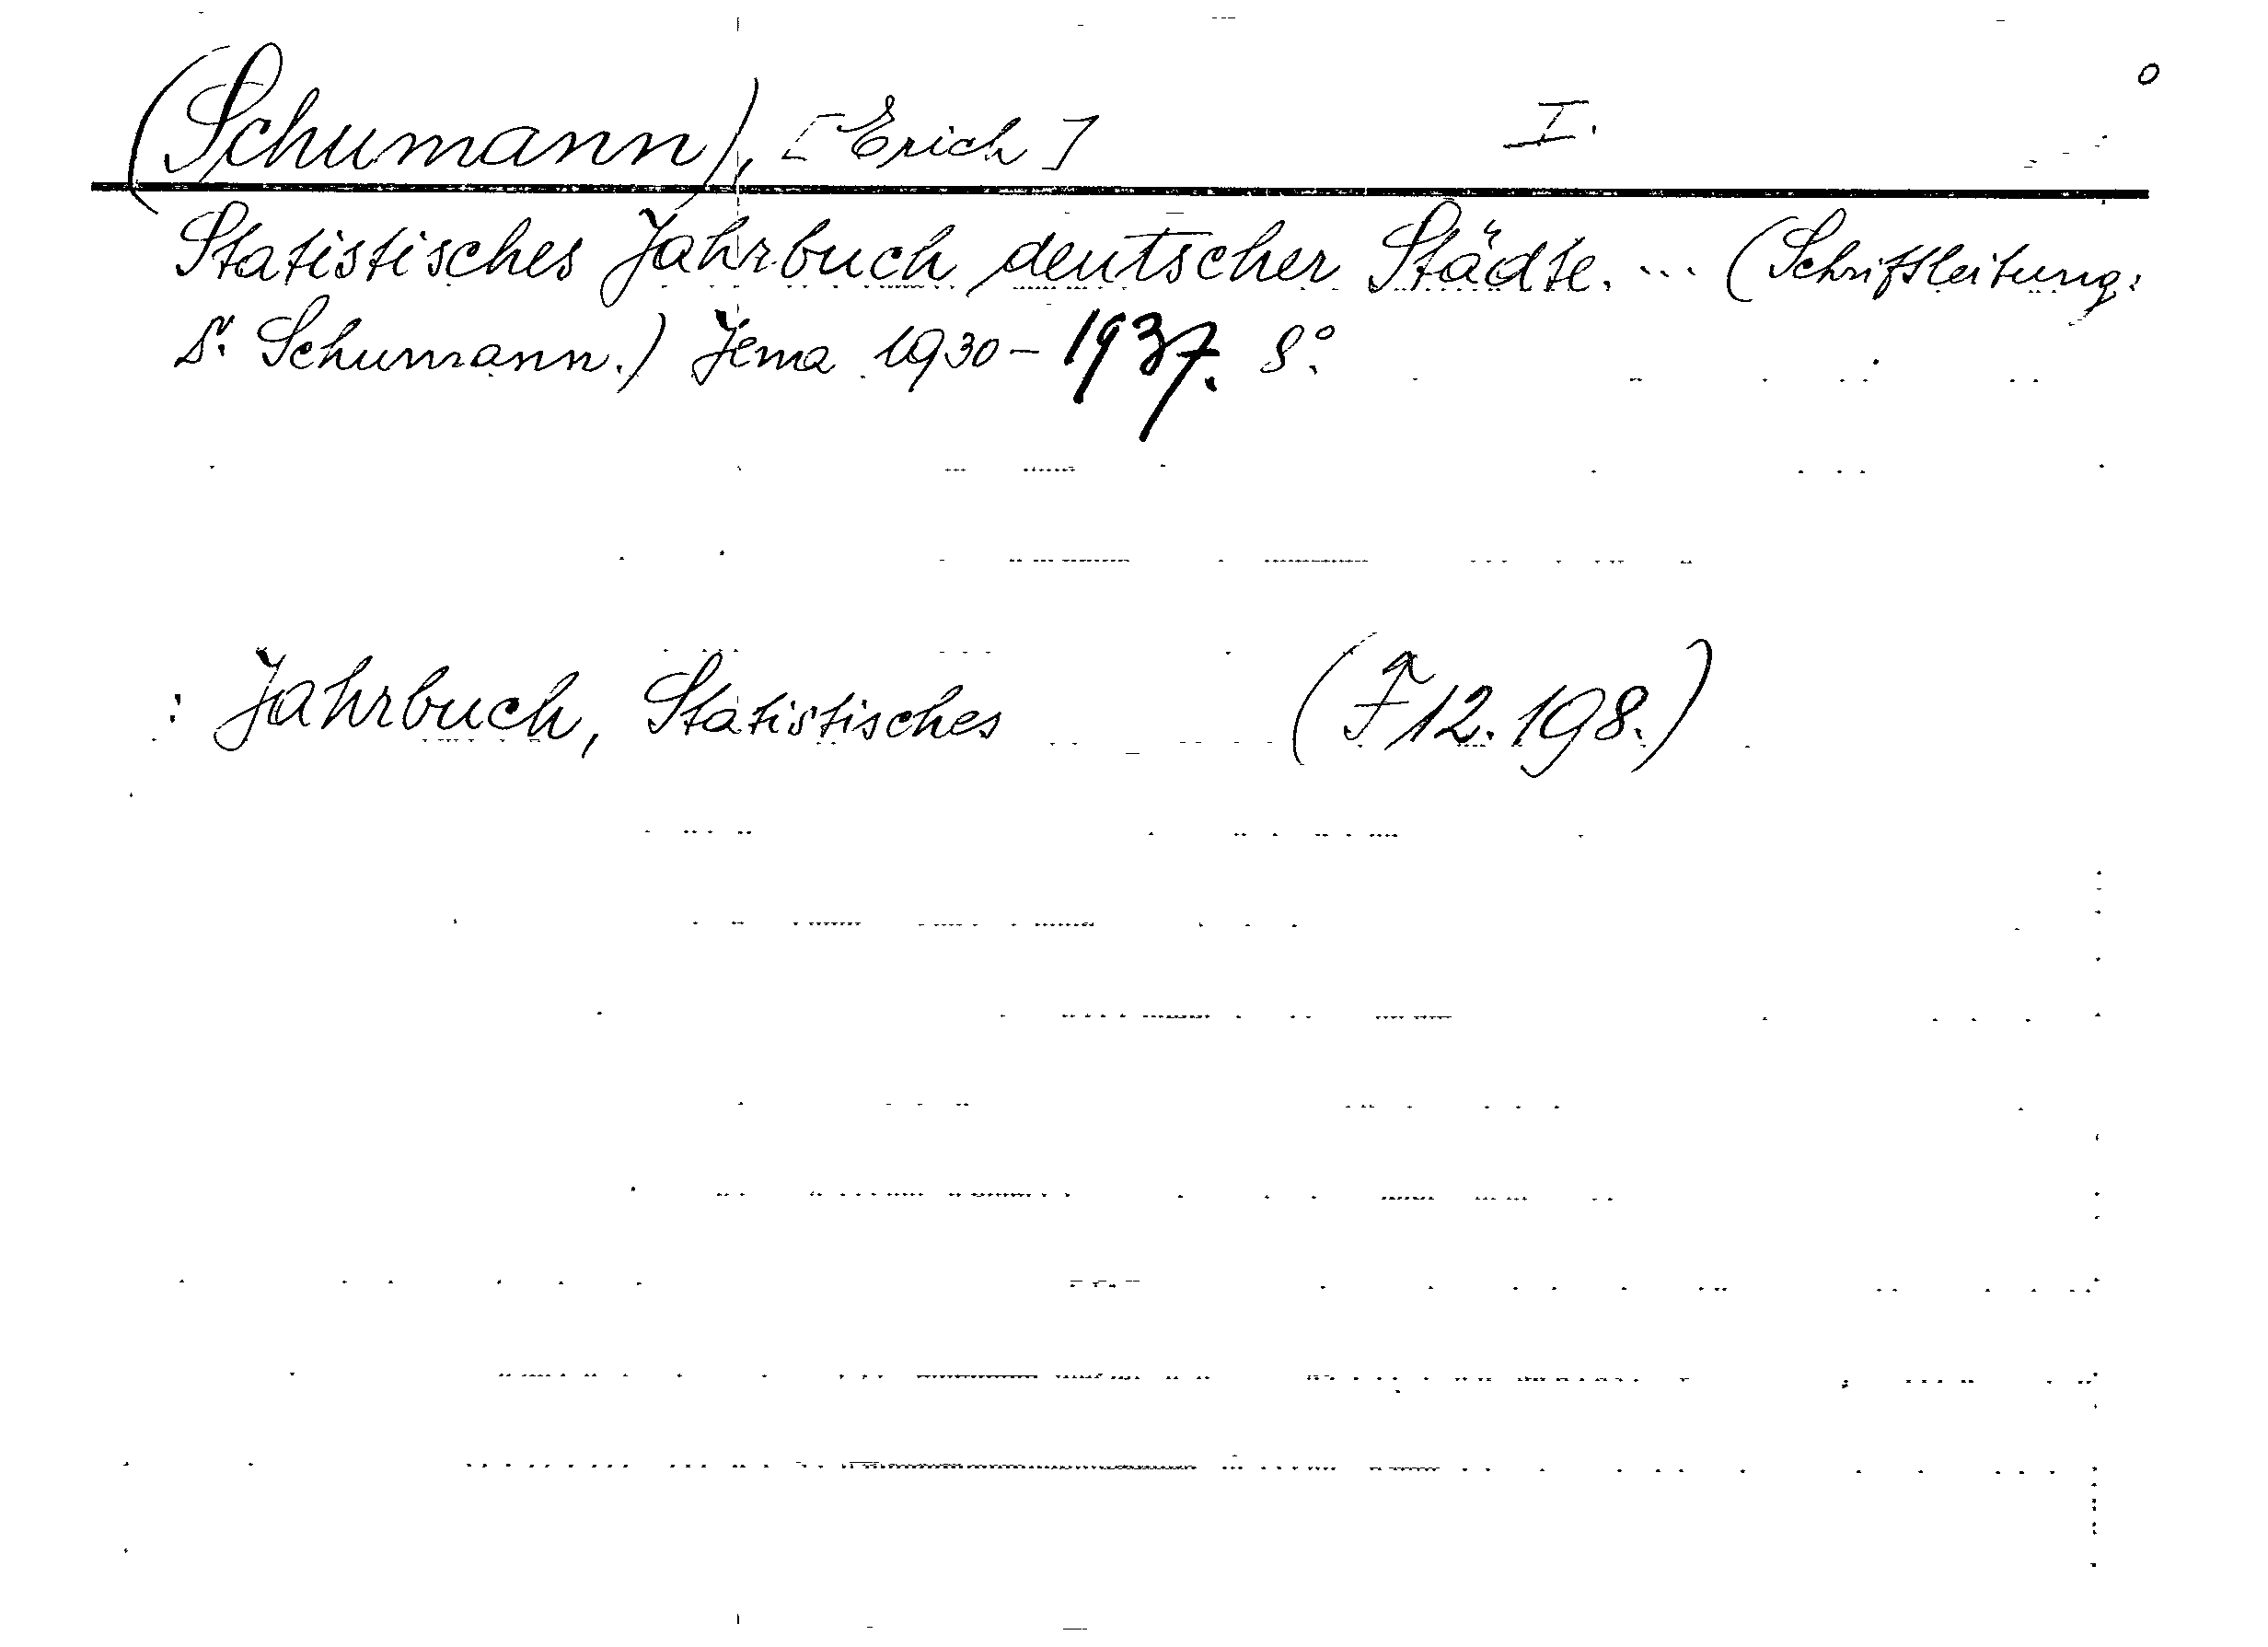 (Schumann), [Erich] I.
Statistisches Jahrbuch deutscher Städte. ... (Schriftleitung:
Dr. Schumann.) Jena 1930-1937. 8°.
: Jahrbuch, Statistisches (F 12.198.)